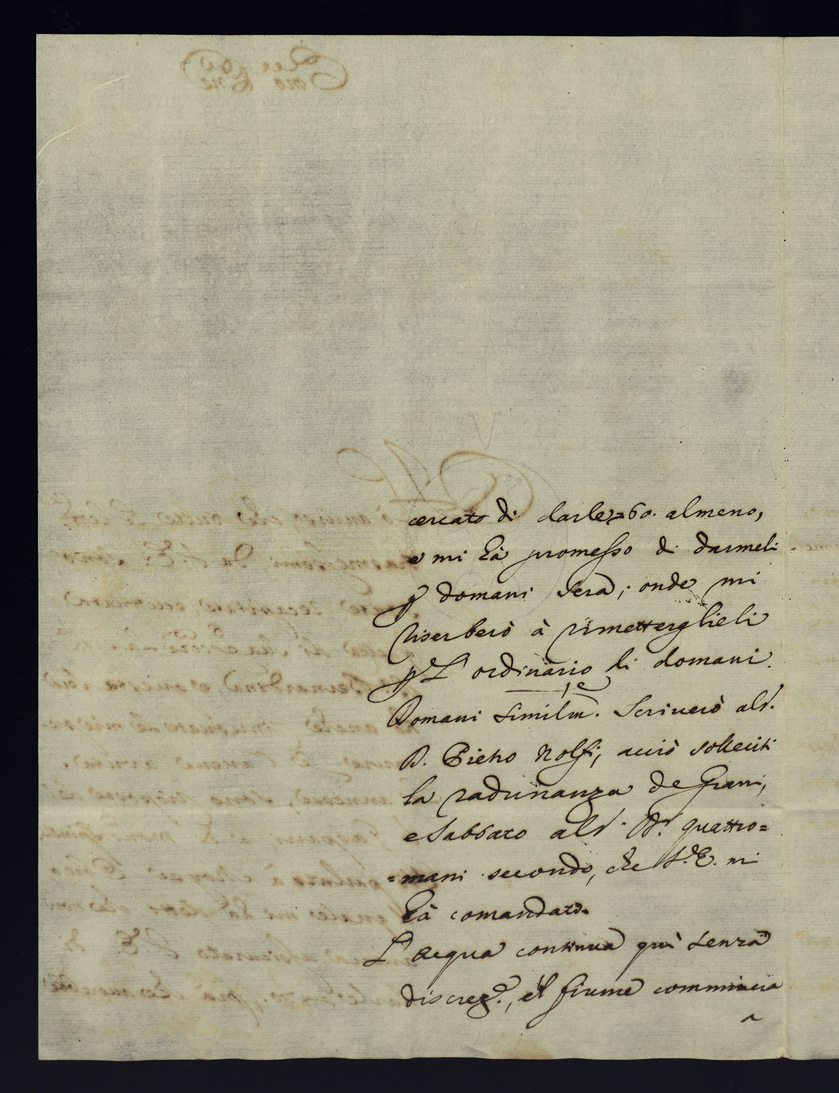 cercato di darle = 60. almeno,
e mi hà promesso di darmeli
p domani sera; onde mi
riserberò à rimetterglieli
p L' ordinario di domani.
Domani similm.te Scriverò al S.r
D. Pietro Nolfi, acciò solleciti
la radunanza de Grani,
e Sabbato al S.r D.r Quattro=
=mani secondo, che S. E. mi
hà comandato.
L' acqua continua quì senza
discrez.e, e 'l fiume commincia
a